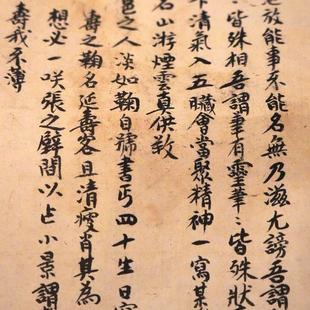 老放能事不能名無乃滋尤謗吾謂
皆殊相吾謂筆有靈筆〻皆殊狀
下清氣入五臟會富聚精神一寫某
名山游煙雲真供敎
邑之人淡如鞠自號書丐四十生日寫
壽之鞠名延壽客且清瘦肖其為
想必一咲張之壁間以占小景謂
壽我不薄